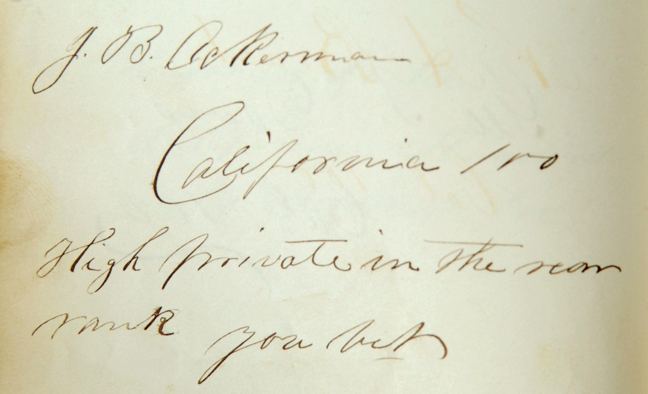 J. B. Ackerman
California 100
High private in the rear
rank you bet